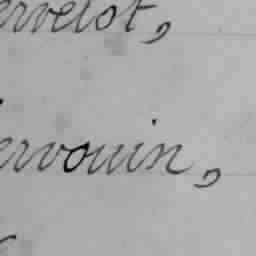 ervelot,
ervouin,